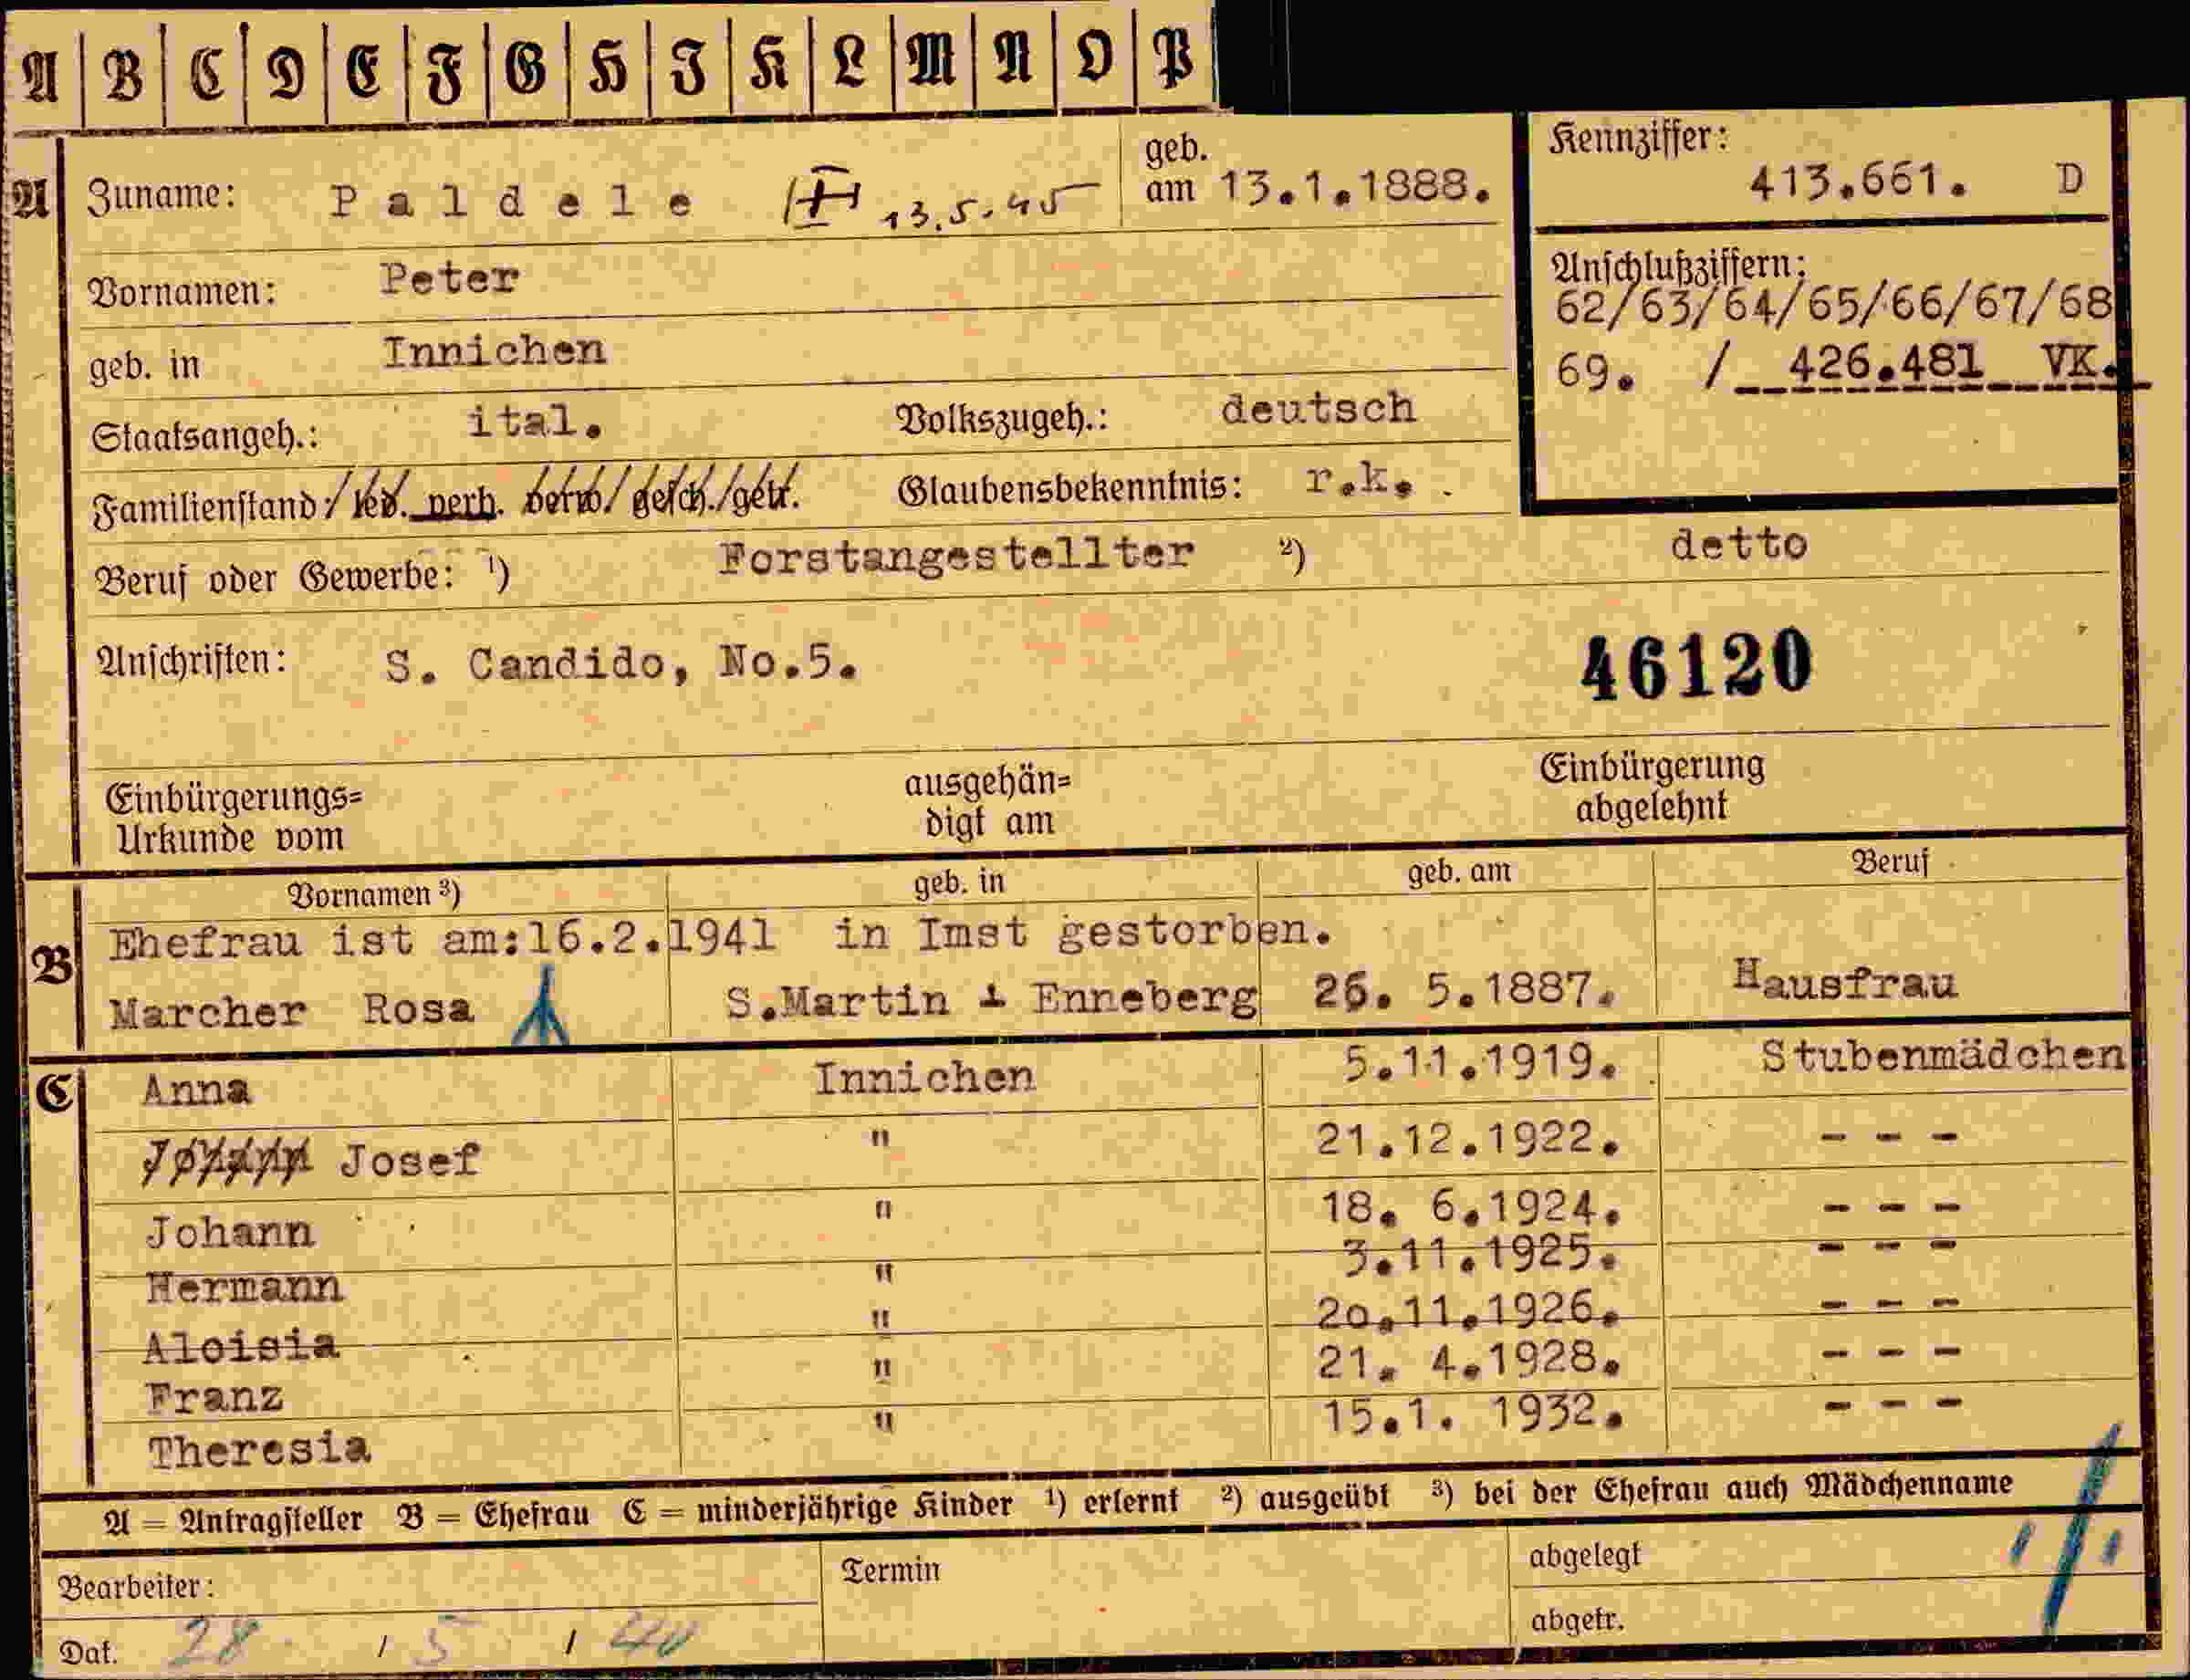 A B C D E F G H I K L M N O P
A Zuname: Paldele 13.5.45 geb. am 13.1.1888.
Kennziffer: 413.661. D
Vornamen: Peter
Anschlußziffern:
62/63/64/65/66/67/68
69. / 426.481 VK.
geb. in Innichen
Staatsangeh.: ital. Volkszugeh.: deutsch
Familienstand: led. verh. verw. gesch. getr. Glaubensbekenntnis: r.k.
Beruf oder Gewerbe: ¹) Forstangestellter ²) detto
Anschriften: S. Candido, No.5. 46120
Einbürgerungs=
Urkunde vom
ausgehän=
digt am
Einbürgerung
abgelehnt
Vornamen ³) geb. in geb. am Beruf
B Ehefrau ist am:16.2.1941 in Imst gestorben.
Marcher Rosa S.Martin i Enneberg 26. 5.1887. Hausfrau
C Anna Innichen 5.11.1919. Stubenmädchen
Josef " 21.12.1922. - - -
Johann " 18. 6.1924. - - -
Hermann " 3.11.1925. - - -
Aloisia " 20.11.1926. - - -
Franz " 21. 4.1928. - - -
Theresia " 15.1. 1932. - - -
A = Antragsteller B = Ehefrau C = minderjährige Kinder ¹) erlernt ²) ausgeübt ³) bei der Ehefrau auch Mädchenname
Bearbeiter: Termin abgelegt
Dat. 28 / 5 / 40 abgetr.